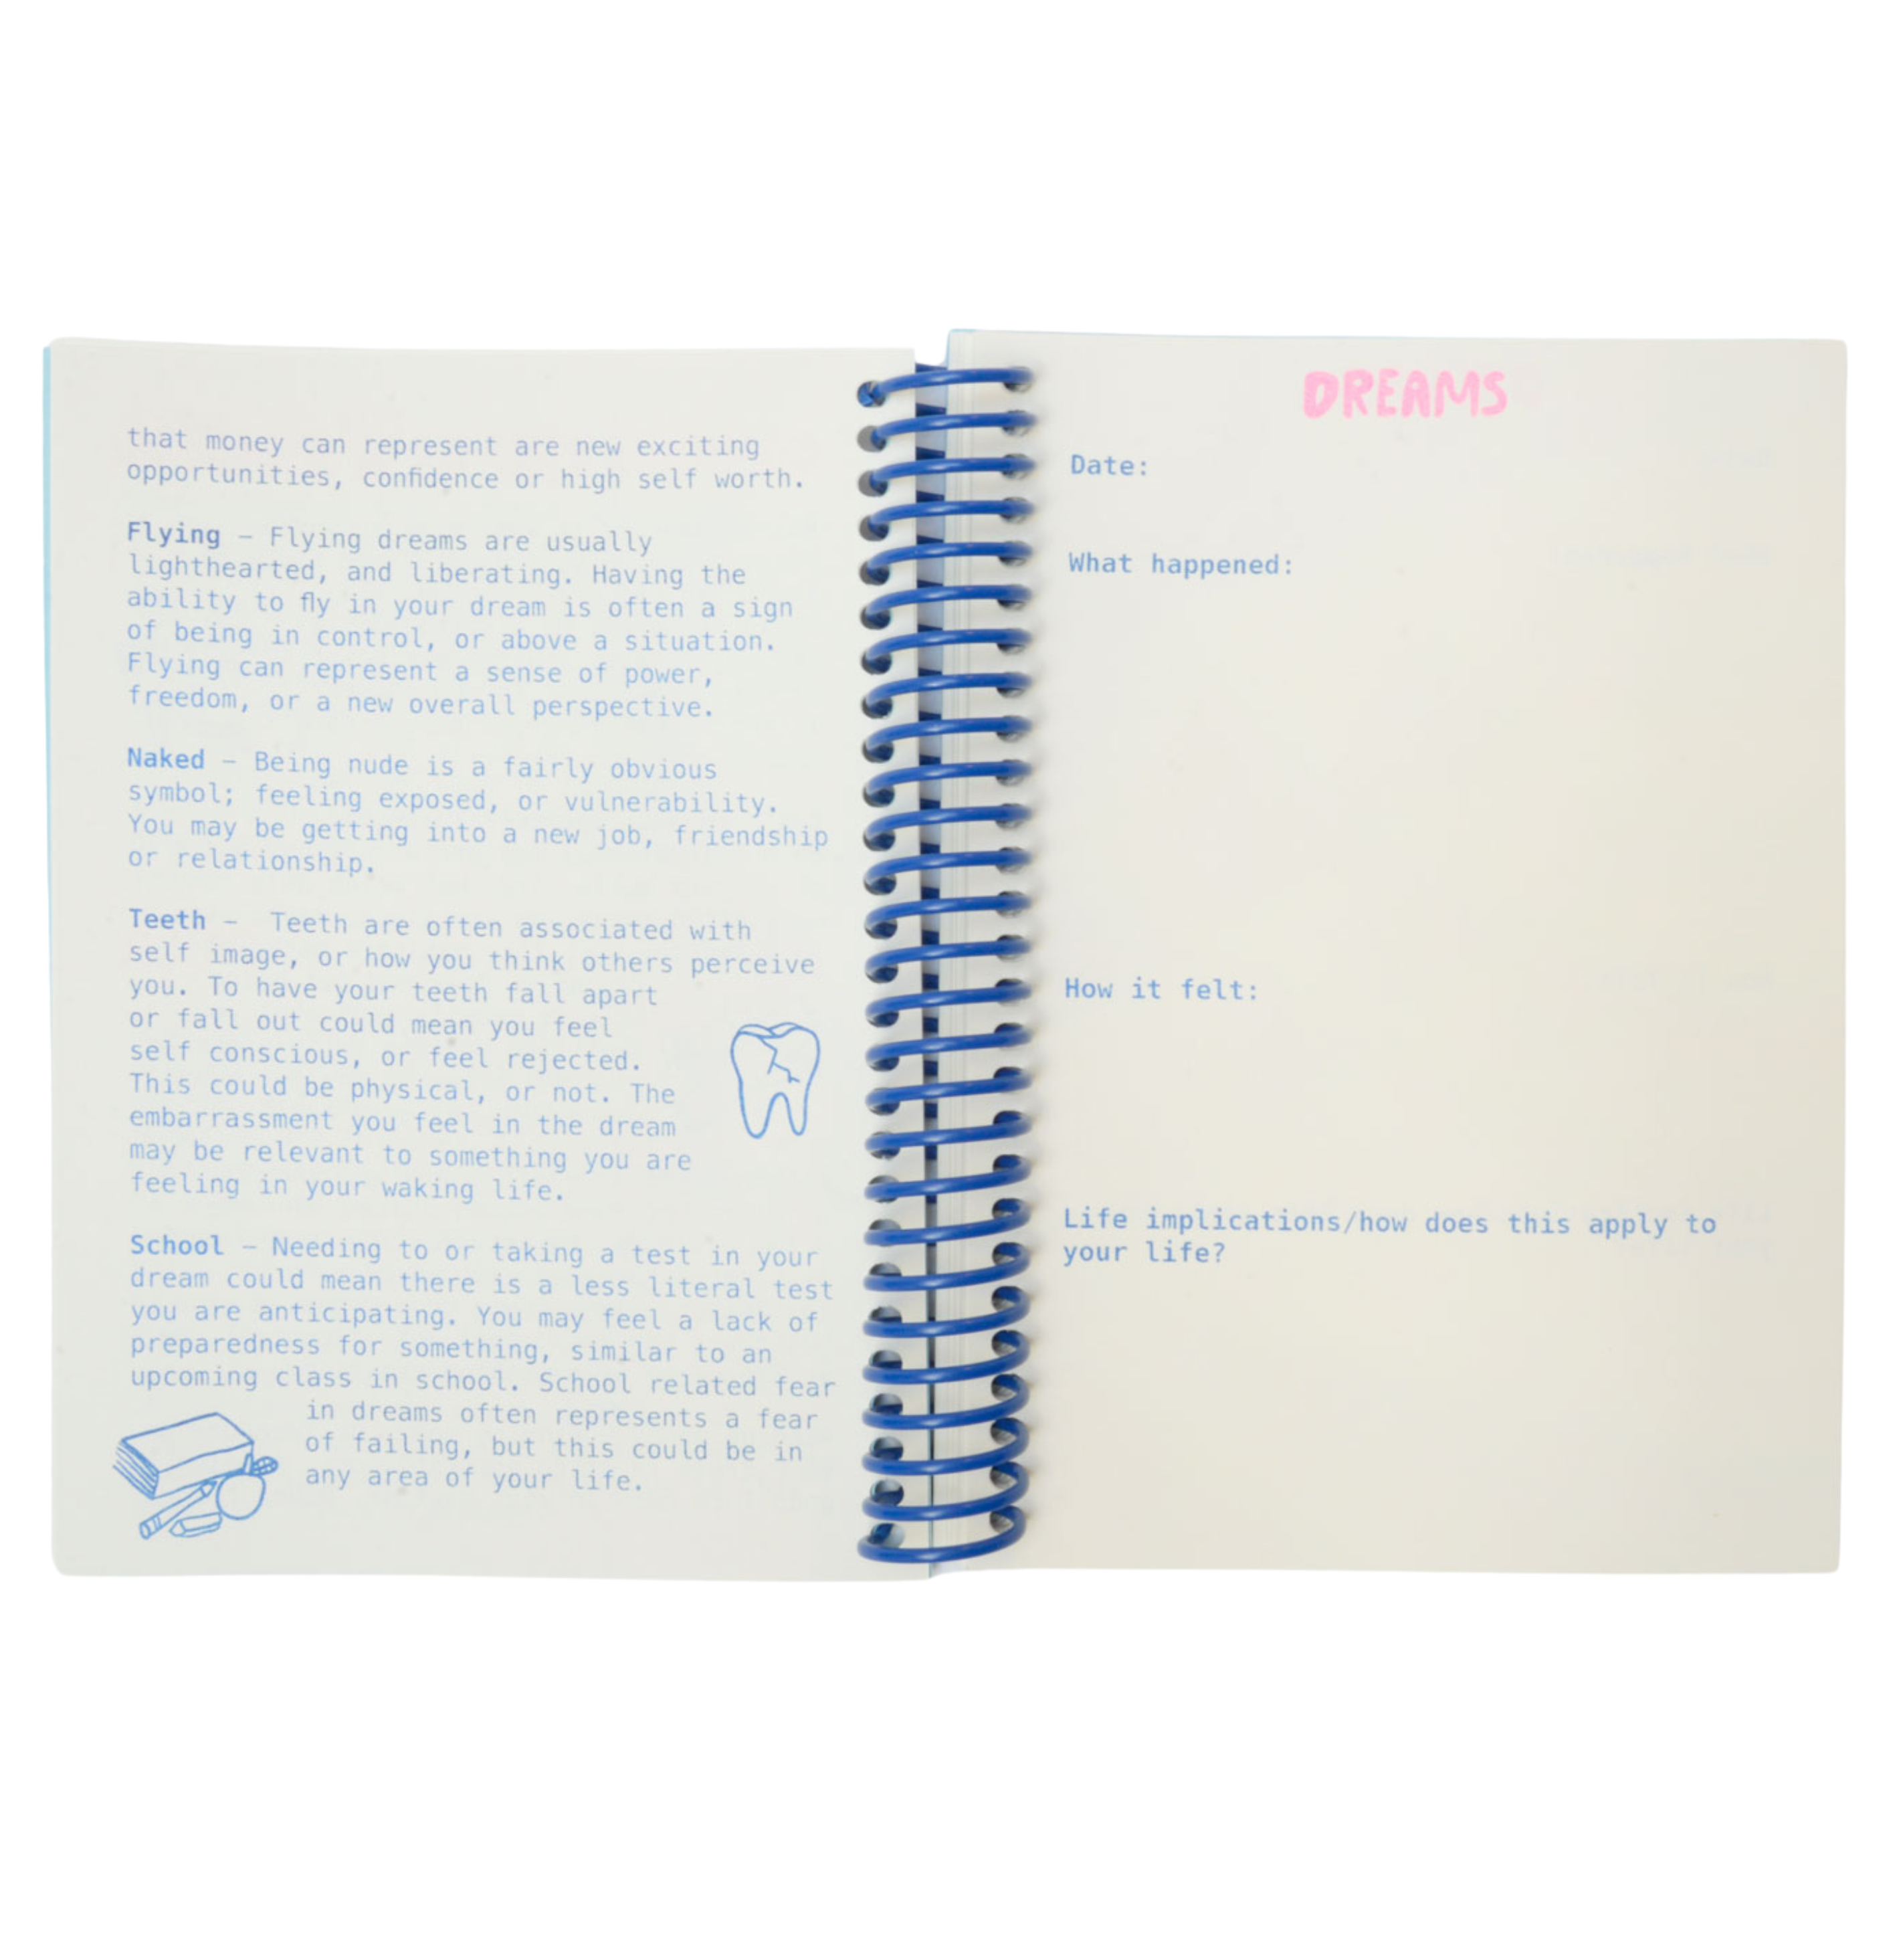 that money can represent are new exciting
opportunities, confidence or high self worth.
Flying – Flying dreams are usually
lighthearted, and liberating. Having the
ability to fly in your dream is often a sign
of being in control, or above a situation.
Flying can represent a sense of power,
freedom, or a new overall perspective.
Naked – Being nude is a fairly obvious
symbol; feeling exposed, or vulnerability.
You may be getting into a new job, friendship
or relationship.
Teeth – Teeth are often associated with
self image, or how you think others perceive
you. To have your teeth fall apart
or fall out could mean you feel
self conscious, or feel rejected.
This could be physical, or not. The
embarrassment you feel in the dream
may be relevant to something you are
feeling in your waking life.
School – Needing to or taking a test in your
dream could mean there is a less literal test
you are anticipating. You may feel a lack of
preparedness for something, similar to an
upcoming class in school. School related fear
in dreams often represents a fear
of failing, but this could be in
any area of your life.
DREAMS
Date:
What happened:
How it felt:
Life implications/how does this apply to
your life?